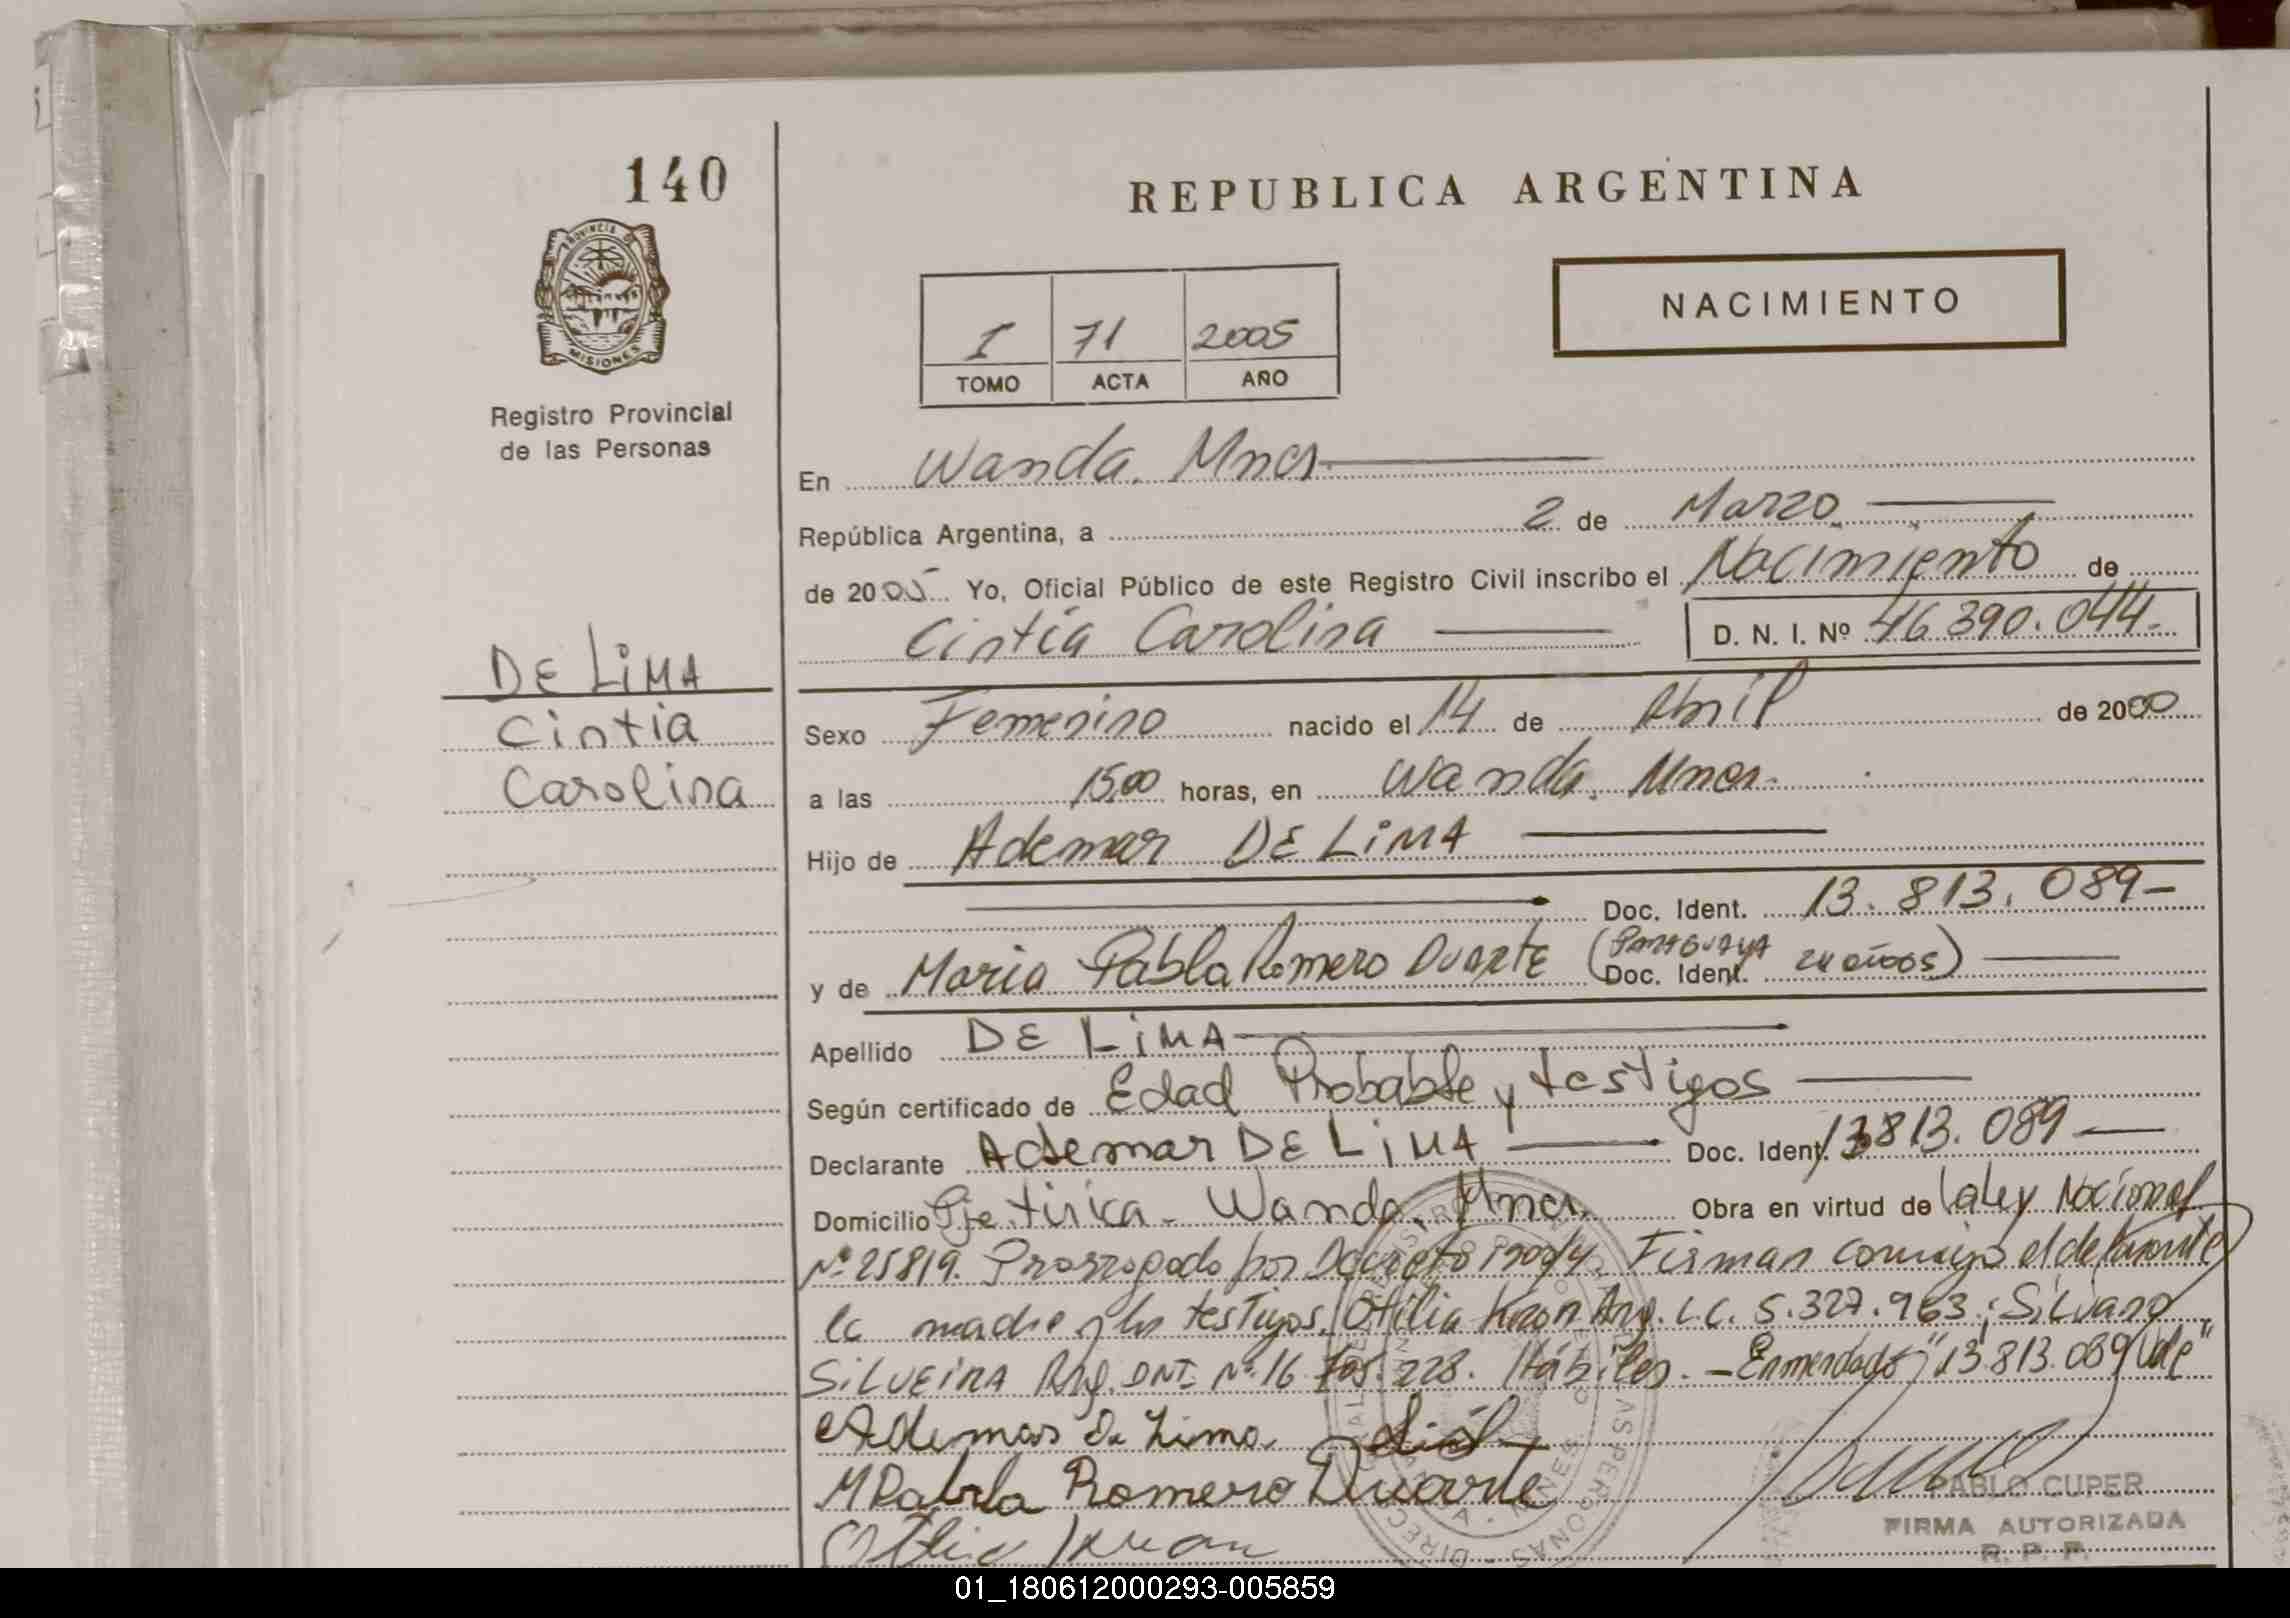 140
REPUBLICA ARGENTINA
NACIMIENTO
PROVINCIA DE
MISIONES
I 71 2005
TOMO ACTA AÑO
Registro Provincial
de las Personas
En Wanda. Mnes
República Argentina, a 2 de Marzo
de 2005 Yo, Oficial Público de este Registro Civil inscribo el Nacimiento de
Cintia Carolina D. N. I. Nº 46.390.044.
DE LiMA
Cintia
Carolina
Sexo Femenino nacido el 14 de Abril de 2000
a las 15,00 horas, en Wanda. Mnes.
Hijo de Ademar DE LiMA
Doc. Ident. 13.813.089
y de Maria Pabla Romero Duarte (PARAGUAYA 24 años) Doc. Ident.
Apellido DE LiMA
Según certificado de Edad Probable y testigos
Declarante Ademar DE LiMA Doc. Ident. 13813.089
Domicilio Pje. tirica. Wanda. Mnes. Obra en virtud de la ley Nacional
Nº 25819. Prorrogado por Decreto Firman conmigo el declarante
la madre y los testigos. Otilia Kron Arg. L.C. 5.327.963; Silvano
SiLVEiRA Arg. DNI. Nº 16 228. Hábiles. - Enmendado "13.813.089 "de"
Ademar De Lima.
M Pabla Romero Duarte
Otilia Kron
PABLO CUPER
FIRMA AUTORIZADA
R. P. P.
01_180612000293-005859